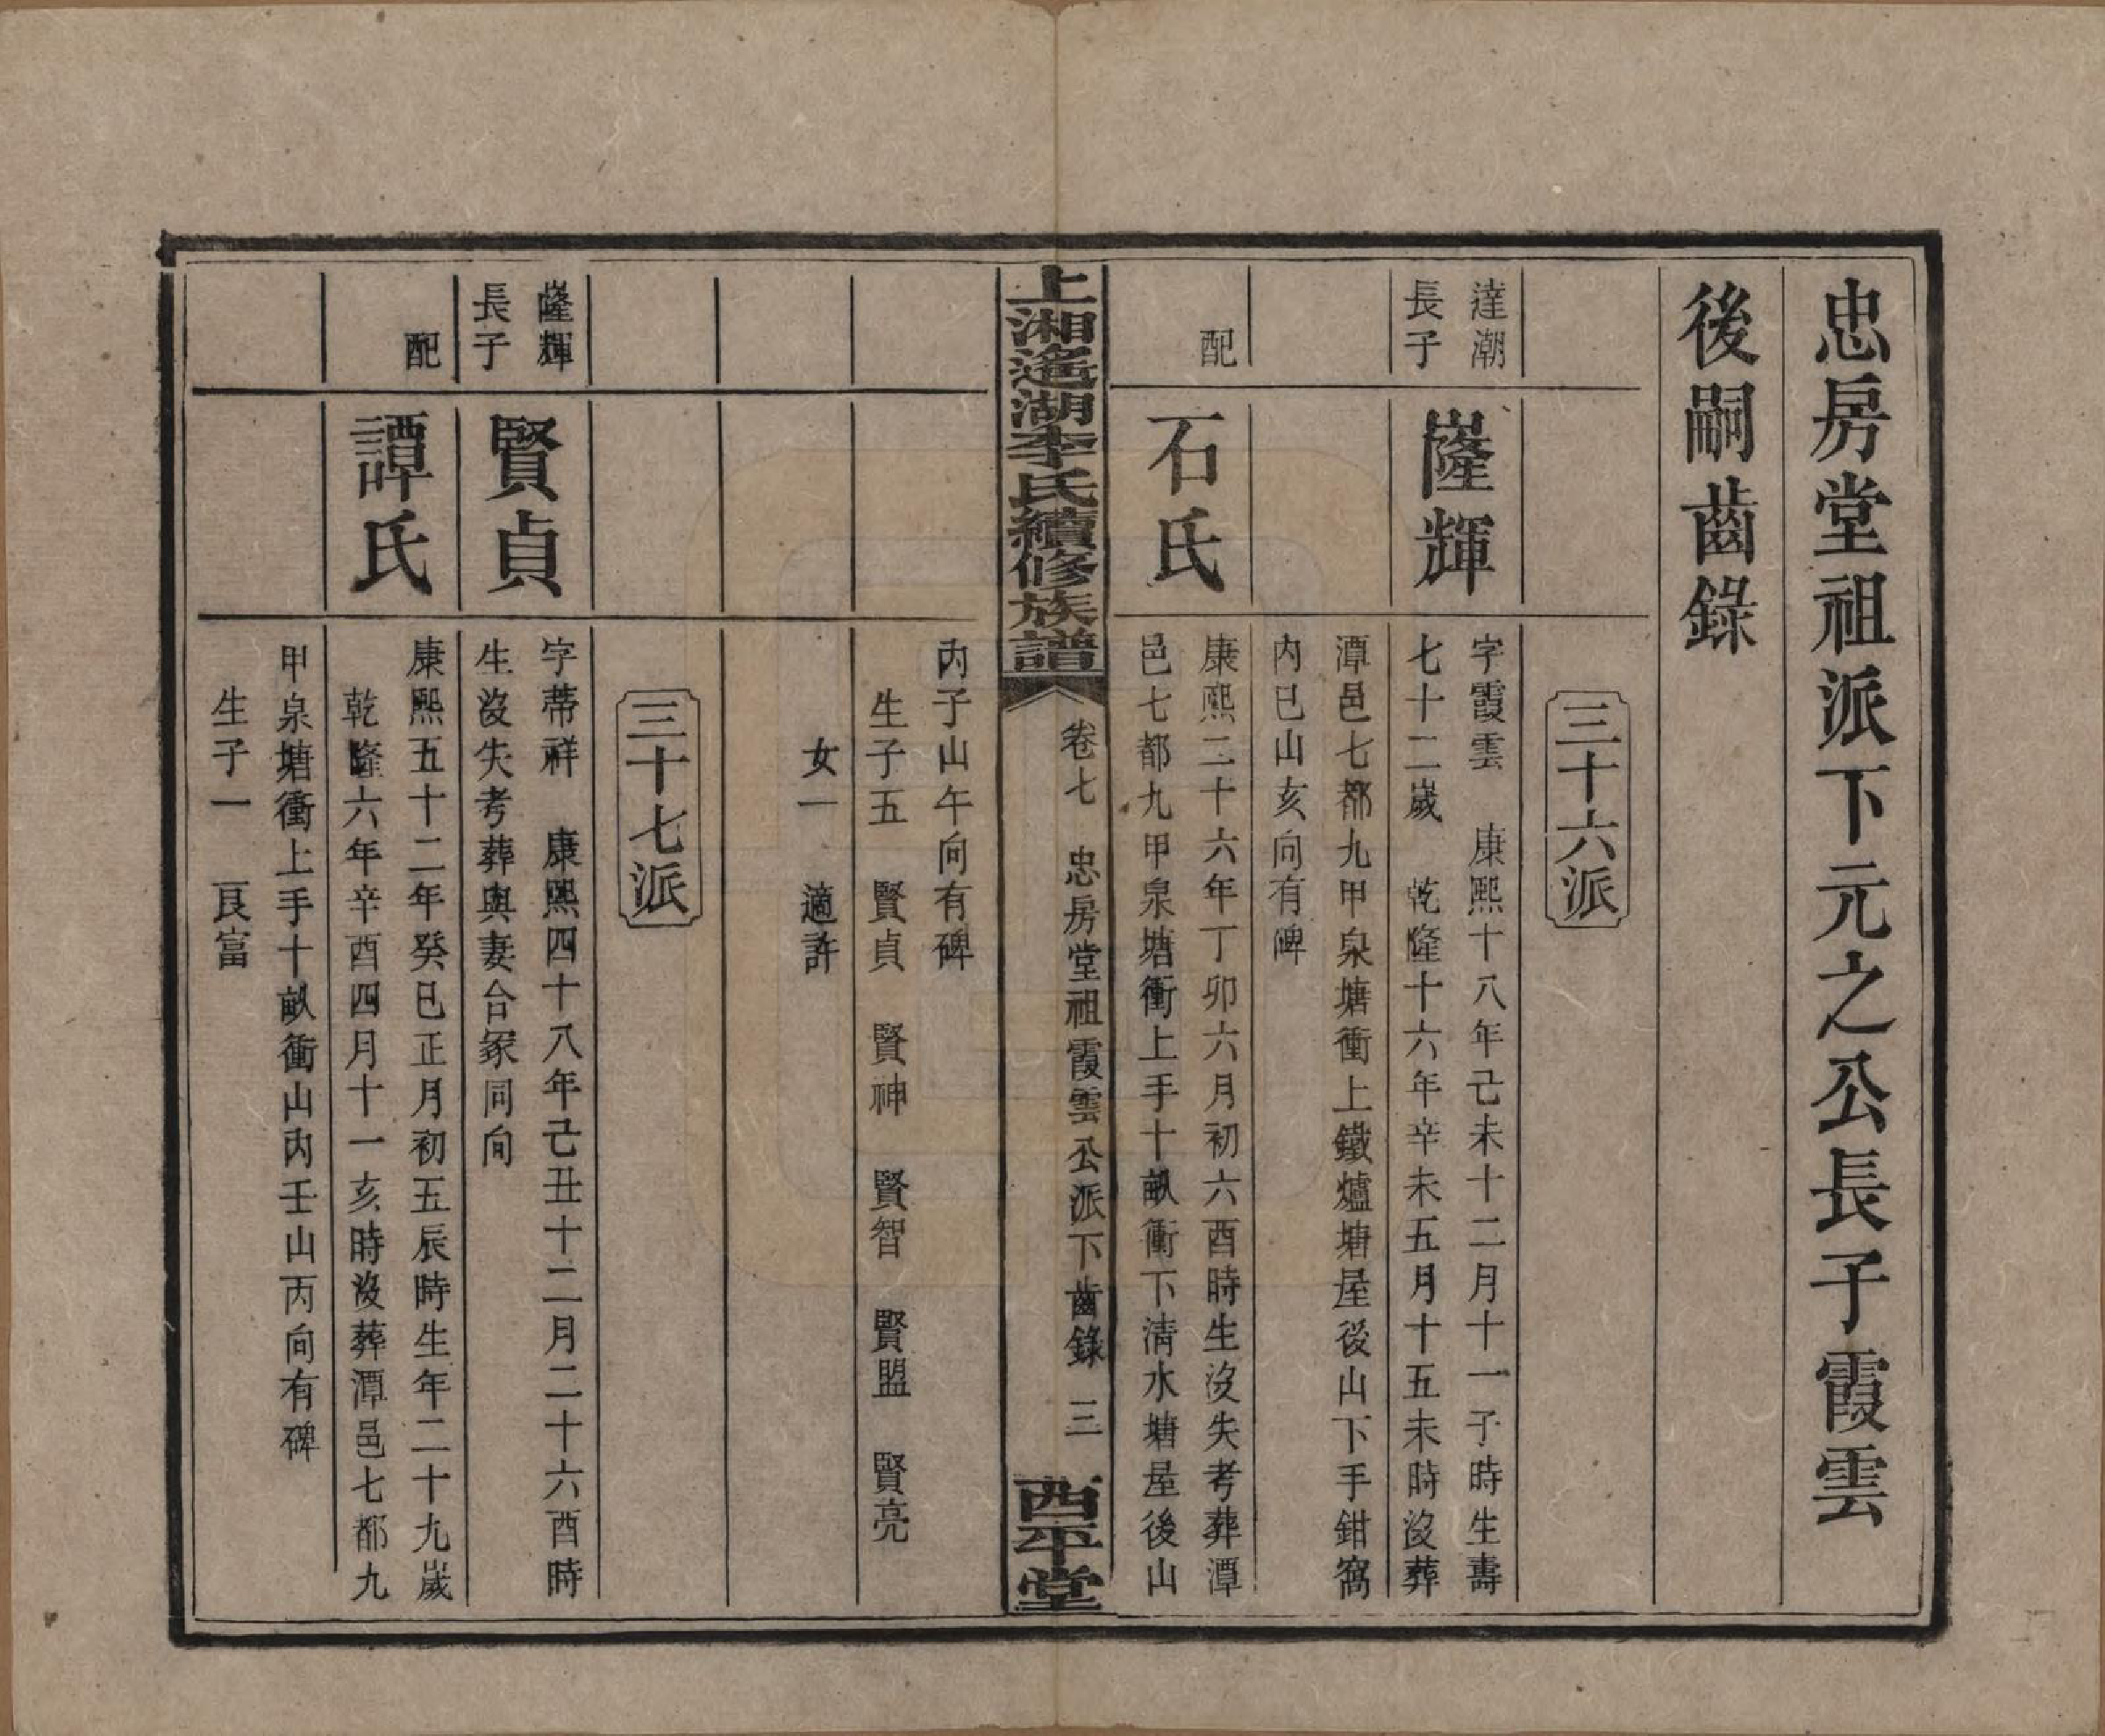 忠房堂祖派下元之公長子霞雲
後嗣齒錄
三十六派
達潮
長子
隆輝
字霞雲　康熙十八年己未十二月十一子時生壽
七十二歲　乾隆十六年辛未五月十五未時沒葬
潭邑七都九甲泉塘衝上鐵爐塘屋後山下手鉗窩
內巳山亥向有碑
配
石氏
康熙二十六年丁卯六月初六酉時生沒失考葬潭
邑七都九甲泉塘衝上手十畝衝下清水塘屋後山
上湘遙湖李氏續修族譜
卷七　忠房堂祖霞雲公派下齒錄　三
西平堂
丙子山午向有碑
生子五　賢貞　賢神　賢智　賢盟　賢亮
女一　適許
三十七派
隆輝
長子
賢貞
字蒂祥　康熙四十八年己丑十二月二十六酉時
生沒失考葬與妻合冢同向
配
譚氏
康熙五十二年癸巳正月初五辰時生年二十九歲
乾隆六年辛酉四月十一亥時沒葬潭邑七都九
甲泉塘衝上手十畝衝山內壬山丙向有碑
生子一　良富